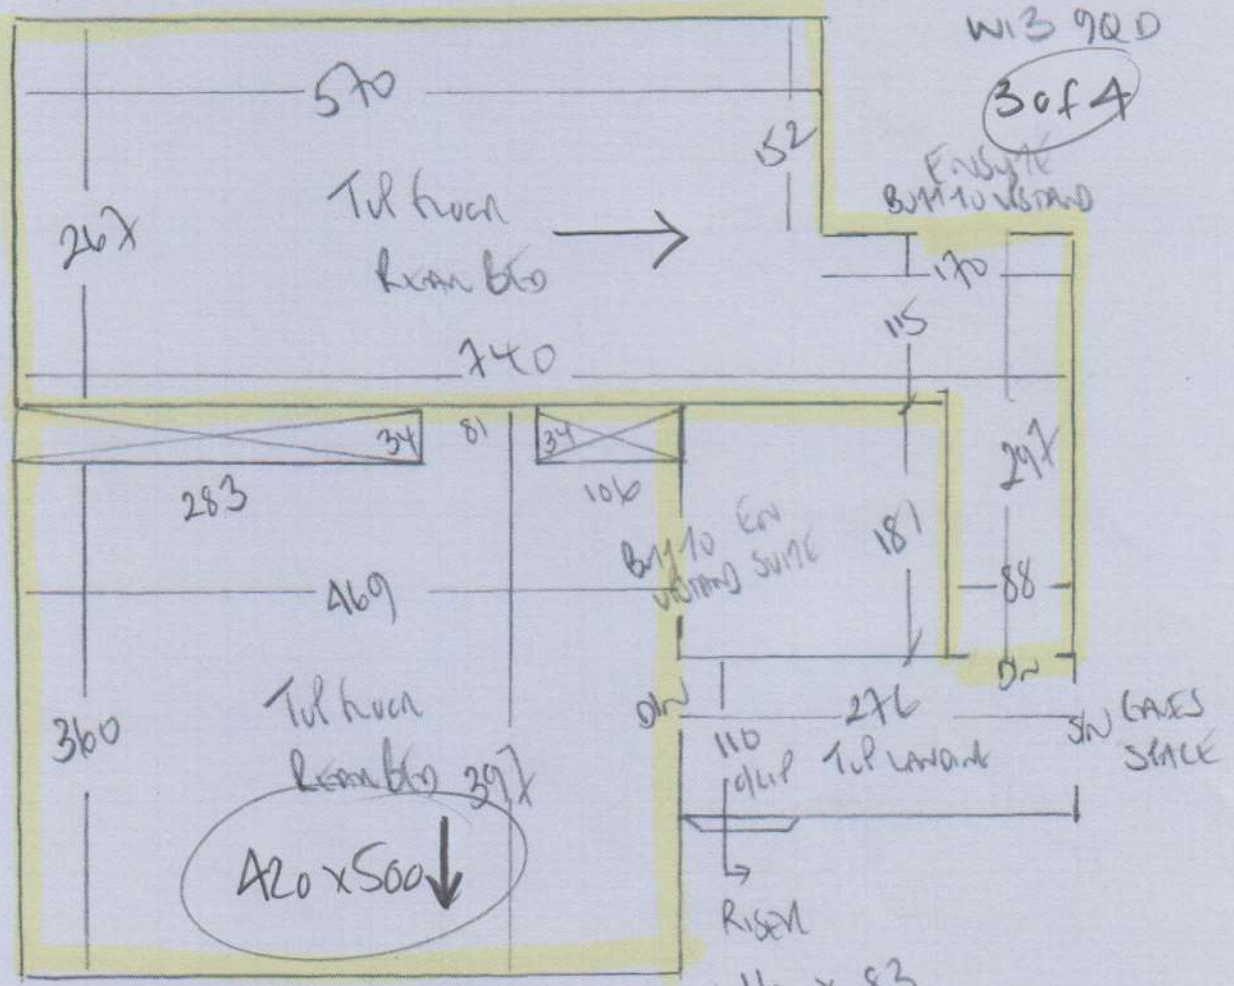 W13 9QD
3 of 4
570
152
ENSUITE
BUTT TO V/STAND
267
TOP FLOOR
REAR BED
170
115
740
34
81
34
283
106
297
BUTT TO EN
V/STAND SUITE
181
469
88
DN
360
TOP FLOOR
REAR BED 397
D/W
276
110
CLIP
TOP LANDING
S/W EAVES
SPACE
420 x 500
RISER
x 83